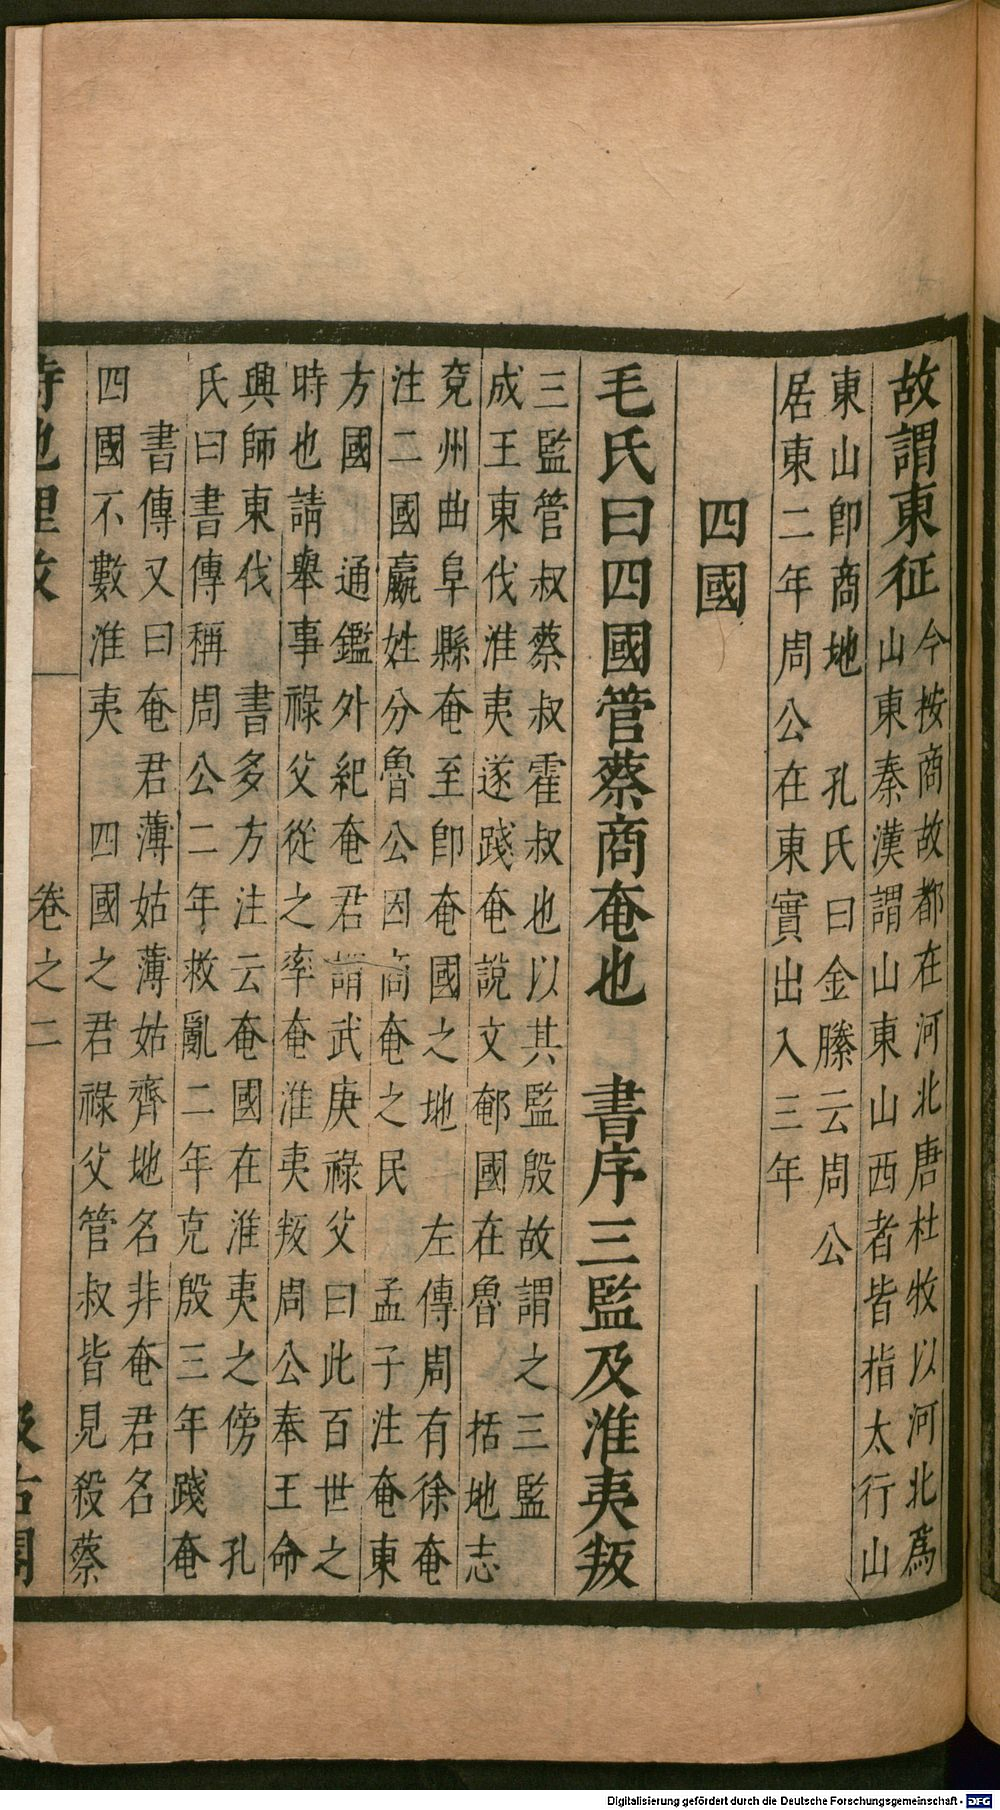 故謂東征
今按商故都在河北唐杜牧以河北爲
山東秦漢謂山東山西者皆指太行山
東山卽商地　孔氏曰金縢云周公
居東二年周公在東實出入三年
四國
毛氏曰四國管蔡商奄也　書序三監及淮夷叛
三監管叔蔡叔霍叔也以其監殷故謂之三監
成王東伐淮夷遂踐奄說文𨛭國在魯　括地志
兗州曲阜縣奄至卽奄國之地　左傳周有徐奄
注二國嬴姓分魯公因商奄之民　孟子注奄東
方國　通鑑外紀奄君謂武庚祿父曰此百世之
時也請舉事祿父從之率奄淮夷叛周公奉王命
興師東伐　書多方注云奄國在淮夷之傍　孔
氏曰書傳稱周公二年救亂二年克殷三年踐奄
書傳又曰奄君薄姑薄姑齊地名非奄君名
四國不數淮夷　四國之君祿父管叔皆見殺蔡
詩地理攷　卷之二　汲古閣
Digitalisierung gefördert durch die Deutsche Forschungsgemeinschaft - DFG